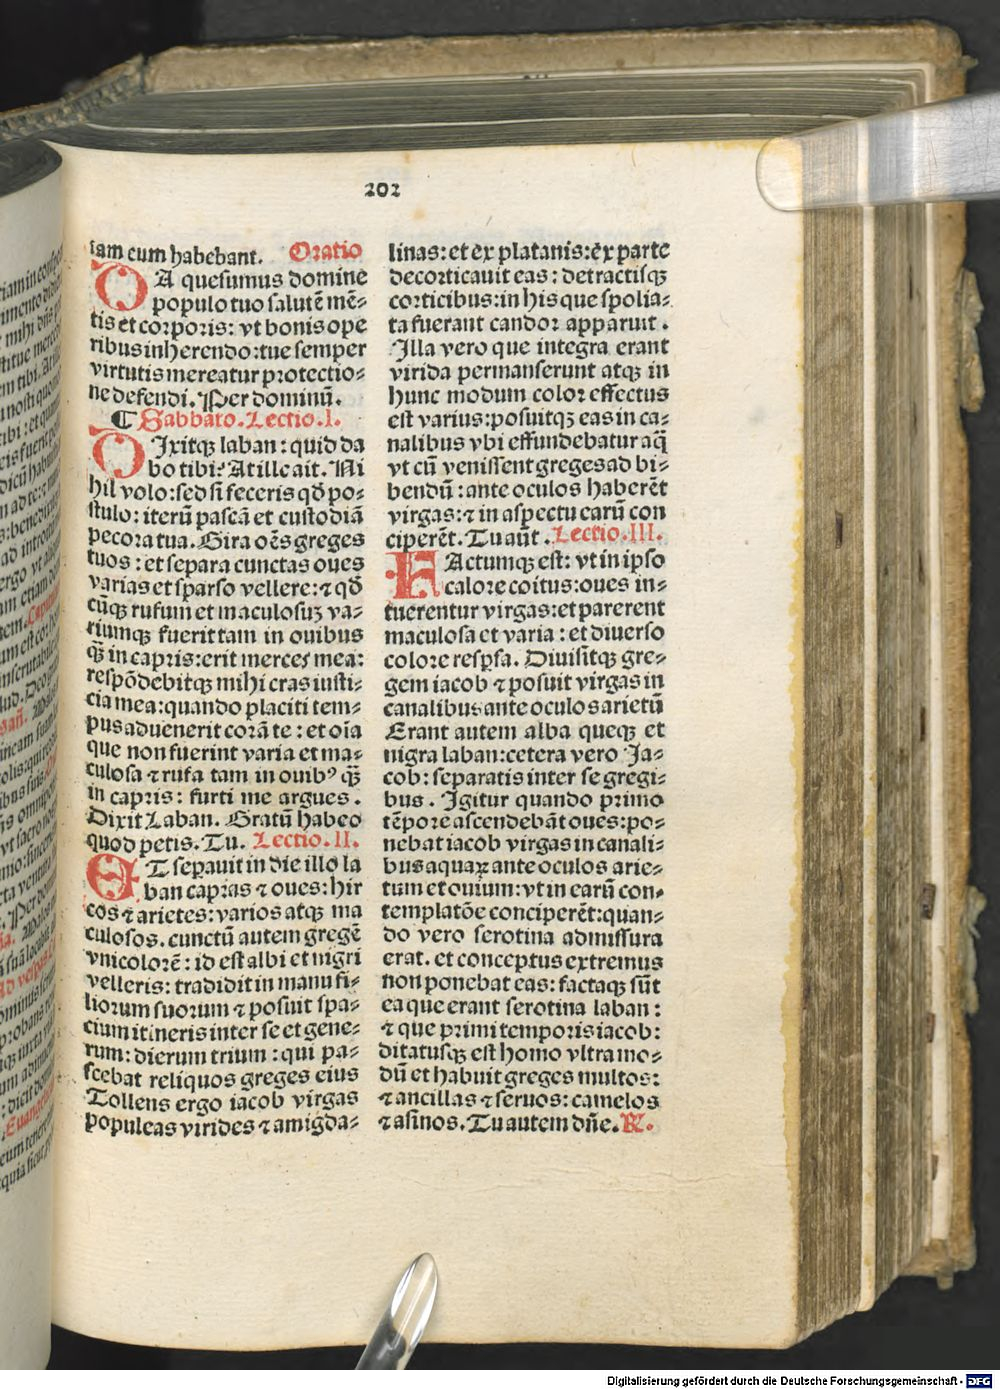 202
sam cum habebant. Oratio
DA quesumus domine
populo tuo salutē mē⸗
tis et corporis: vt bonis ope
ribus inherendo: tue semper
virtutis mereatur protectio⸗
ne defendi. Per dominū.
¶ Sabbato. Lectio. I.
DIxitqꝫ laban: quid da
bo tibi? At ille ait. Ni
hil volo: sed si feceris qđ po⸗
stulo: iterū pascā et custodiā
pecora tua. Gira oēs greges
tuos: et separa cunctas oues
varias et sparso vellere: ⁊ qđ
cūqꝫ rufum et maculosuꝫ va⸗
riumqꝫ fuerit tam in ouibus
qꝫ̄ in capris: erit merces mea:
respōdebitqꝫ mihi cras iusti⸗
cia mea: quando placiti tem⸗
pus aduenerit corā te: et oīa
que non fuerint varia et ma⸗
culosa ⁊ rufa tam in ouibꝰ qꝫ̄
in capris: furti me argues.
Dixit Laban. Gratū habeo
quod petis. Tu. Lectio. II.
ET sepauit in die illo la
ban capras ⁊ oues: hir
cos ⁊ arietes: varios atqꝫ ma
culosos. cunctū autem gregē
vnicolorē: id est albi et nigri
velleris: tradidit in manu fi⸗
liorum suorum ⁊ posuit spa⸗
cium itineris inter se et gene⸗
rum: dierum trium: qui pa⸗
scebat reliquos greges eius
Tollens ergo iacob virgas
populeas virides ⁊ amigda⸗
linas: et ex platanis: ex parte
decorticauit eas: detractisqꝫ
corticibus: in his que spolia⸗
ta fuerant candor apparuit.
Illa vero que integra erant
virida permanserunt atqꝫ in
hunc modum color effectus
est varius: posuitqꝫ eas in ca⸗
nalibus vbi effundebatur aq̄
vt cū venissent greges ad bi⸗
bendū: ante oculos haberēt
virgas: ⁊ in aspectu earū con
ciperēt. Tu aūt. Lectio. III.
FActumqꝫ est: vt in ipso
calore coitus: oues in⸗
tuerentur virgas: et parerent
maculosa et varia: et diuerso
colore respsa. Diuisitqꝫ gre⸗
gem iacob ⁊ posuit virgas in
canalibus ante oculos arietū
Erant autem alba queqꝫ et
nigra laban: cetera vero Ja⸗
cob: separatis inter se gregi⸗
bus. Igitur quando primo
tēpore ascendebāt oues: po⸗
nebat iacob virgas in canali⸗
bus aquaꝝ ante oculos arie⸗
tum et ouium: vt in earū con⸗
templatōe conciperēt: quan⸗
do vero serotina admissura
erat. et conceptus extremus
non ponebat eas: factaqꝫ sūt
ea que erant serotina laban:
⁊ que primi temporis iacob:
ditatusqꝫ est homo vltra mo⸗
dū et habuit greges multos:
⁊ ancillas ⁊ seruos: camelos
⁊ asinos. Tu autem dn̄e. ℞.
Digitalisierung gefördert durch die Deutsche Forschungsgemeinschaft - DFG